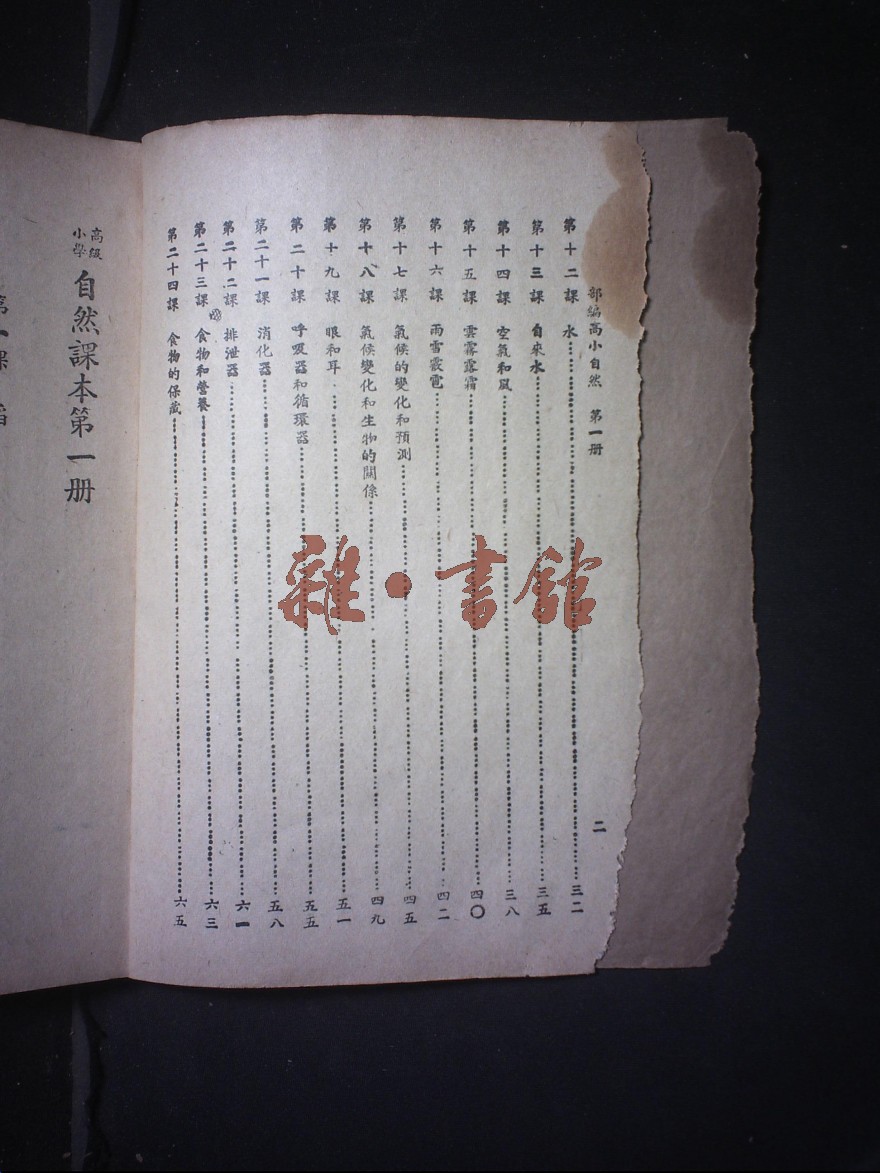 部編高小自然　第一册
二
第十二課　水……三二
第十三課　自來水……三五
第十四課　空氣和風……三八
第十五課　雲霧露霜……四〇
第十六課　雨雪霰雹……四二
第十七課　氣候的變化和預測……四五
第十八課　氣候變化和生物的關係……四九
第十九課　眼和耳……五一
第二十課　呼吸器和循環器……五五
第二十一課　消化器……五八
第二十二課　排泄器……六一
第二十三課　食物和營養……六三
第二十四課　食物的保藏……六五
高級小學　自然課本第一册
第一課
雜·書館